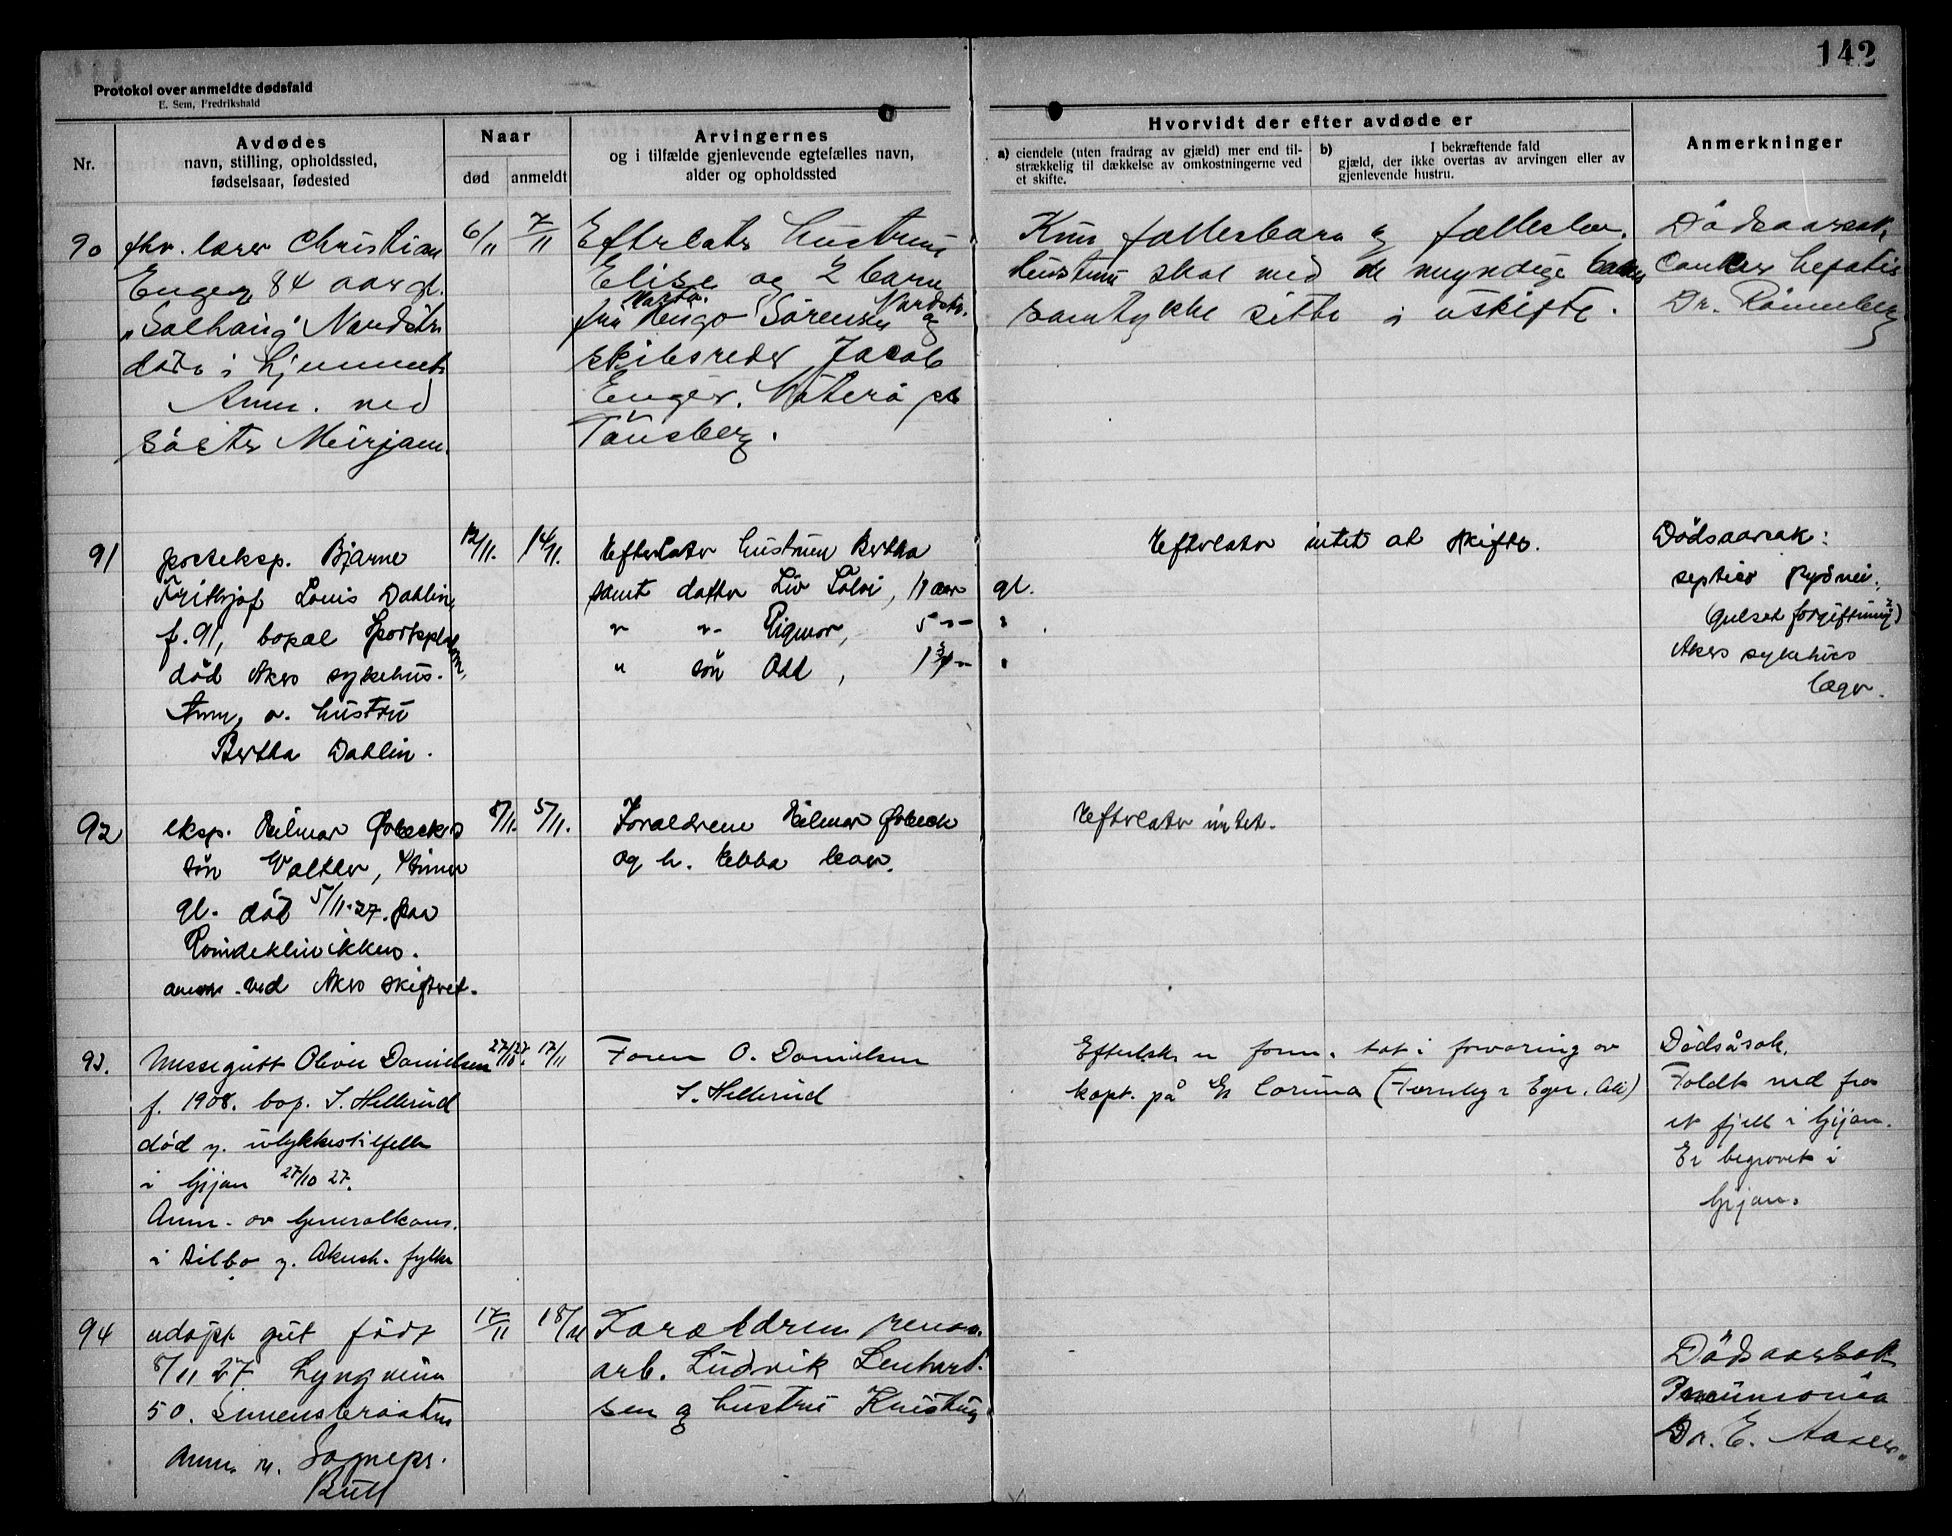 142
Protokol over anmeldte dødsfald
E. Sem, Fredrikshald
Nr.
Avdødes
navn, stilling, opholdssted,
fødselsaar, fødested
Naar
død
anmeldt
Arvingernes
og i tilfælde gjenlevende egtefælles navn,
alder og opholdssted
Hvorvidt der efter avdøde er
a) eiendele (uten fradrag av gjæld) mer end til-
strækkelig til dækkelse av omkostningerne ved
et skifte.
b) I bekræftende fald
gjæld, der ikke overtas av arvingen eller av
gjenlevende hustru.
Anmerkninger
90
fhv. lærer Christian
Enger 84 aar gl.
"Solhaug" Nordstr.
døde i hjemmet
Anm. ved
søster Mirjam.
6/11
7/11
Efterlater hustru
Elise og 2 barn
fru Hugo Sørensen Nordstr. og
skibsreder Jacob
Enger, Nøterø pr.
Tønsberg.
Kun fællesbarn og fælleseie.
Hustru skal med de myndige barns
samtykke sitte i uskifte.
Dødsaarsak
Cancer hepatis
Dr. Rønneberg
91
posteksp. Bjarne
Fritjof Louis Dahlin,
f. 91, bopæl
død Akers sykehus.
Anm. av hustru
Bertha Dahlin.
12/11.
14/11.
Efterlater hustruen Bertha
samt datter Liv Solvi, 11 aar gl.
" " Rigmor, 5 " "
" søn Odd, 1 3/4 " "
Efterlater intet at skifte.
Dødsaarsak:
septico
(gulsot forgiftning?)
Akers sykehus
læge.
92
eksp. Hilmar Østbecks
søn Walther,
gl. død 5/11.27. paa
Kvindeklinikken.
anm. ved Akers skifteret.
8/11.
5/11.
Forældrene Hilmar
og h. Ebba
Efterlater intet.
93.
Messegutt Oliver Danielsen
f. 1908. bop. S. Hellerud
død v. ulykkestilfelle
i Gijon 27/10 27.
Anm. av Generalkons.
i Bilbao g. Akersh. fylke
27/10 27.
17/11
Faren O. Danielsen
S. Hellerud
Efterlatt er form. tat i forvaring av
kapt. på Es Coruna (Fearnley & Eger, Oslo)
Dødsårsak.
Faldt ned fra
et fjell i Gijon.
Er begravet i
Gijon.
94
udøpt gut født
8/11 27. Lyngveien
50. Simensbraaten
Anm. v. Sognepr.
Bull
17/11
18/11
Forældrene renov.
arb. Ludvik Lenhard-
sen og hustru
Dødsaarsak
Pneumonia
Dr. E. Aaser.